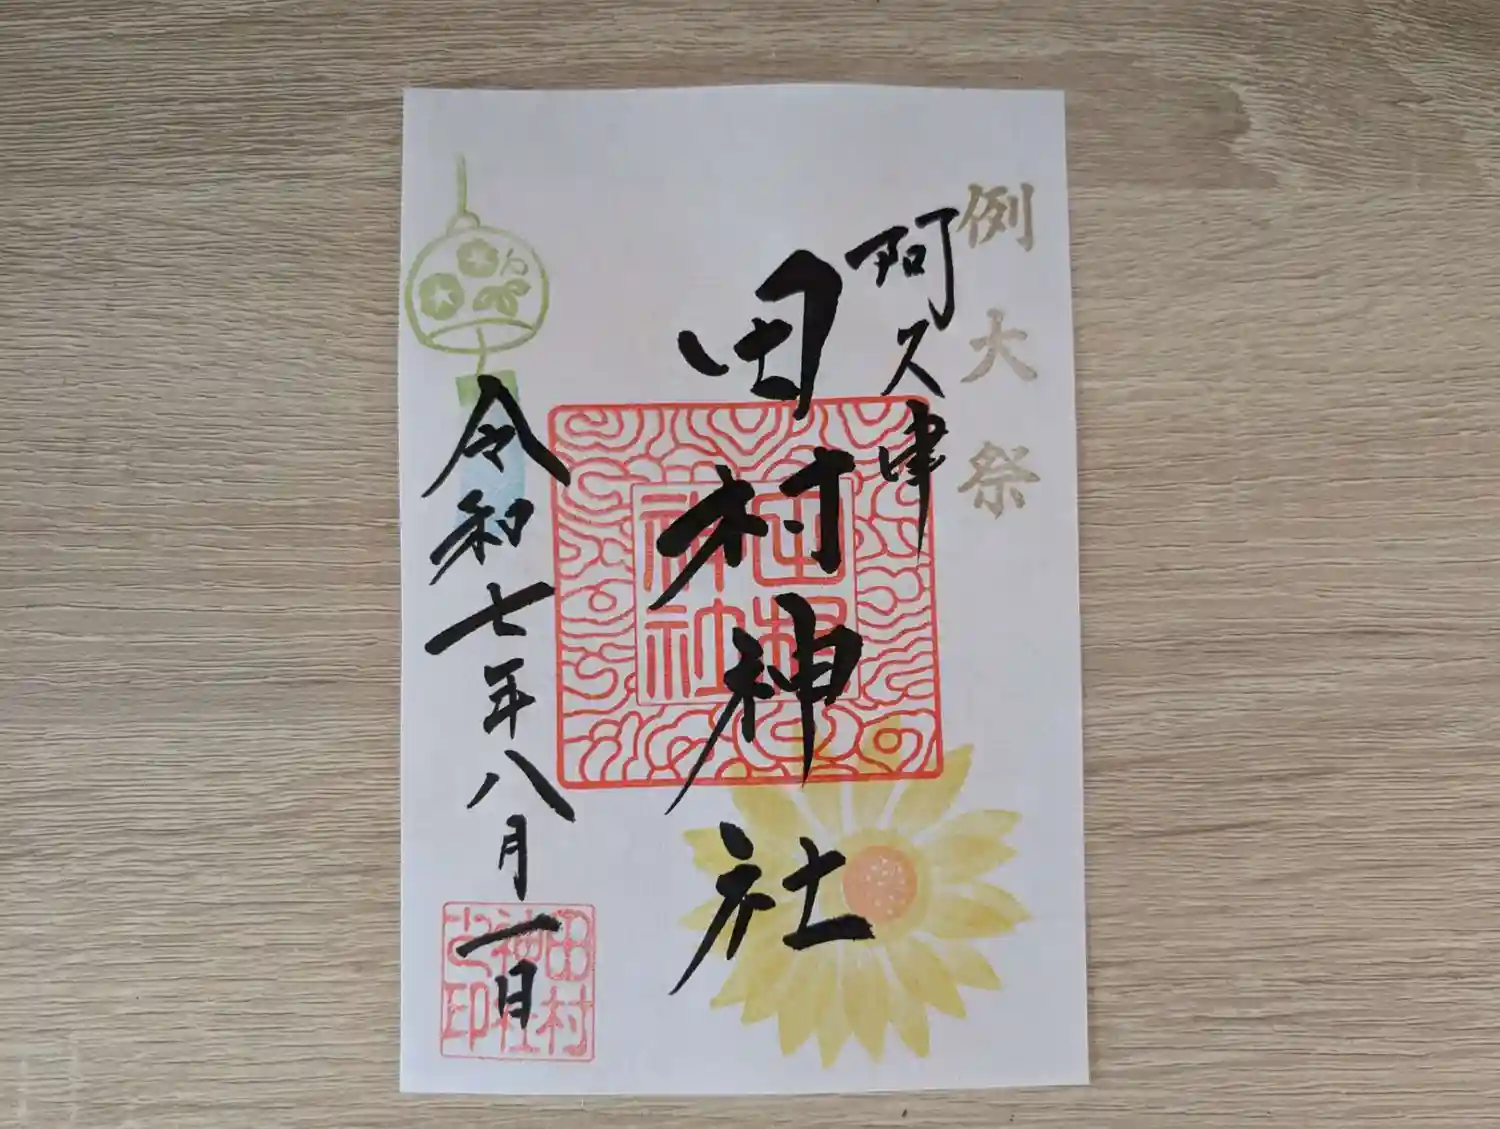 例大祭
阿久津
田村神社
田村
神社
令和七年八月一日
田村
神社
之印